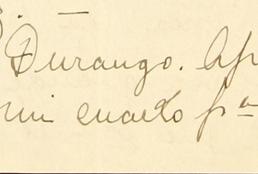 Durango. Ap
mi cuarto pa